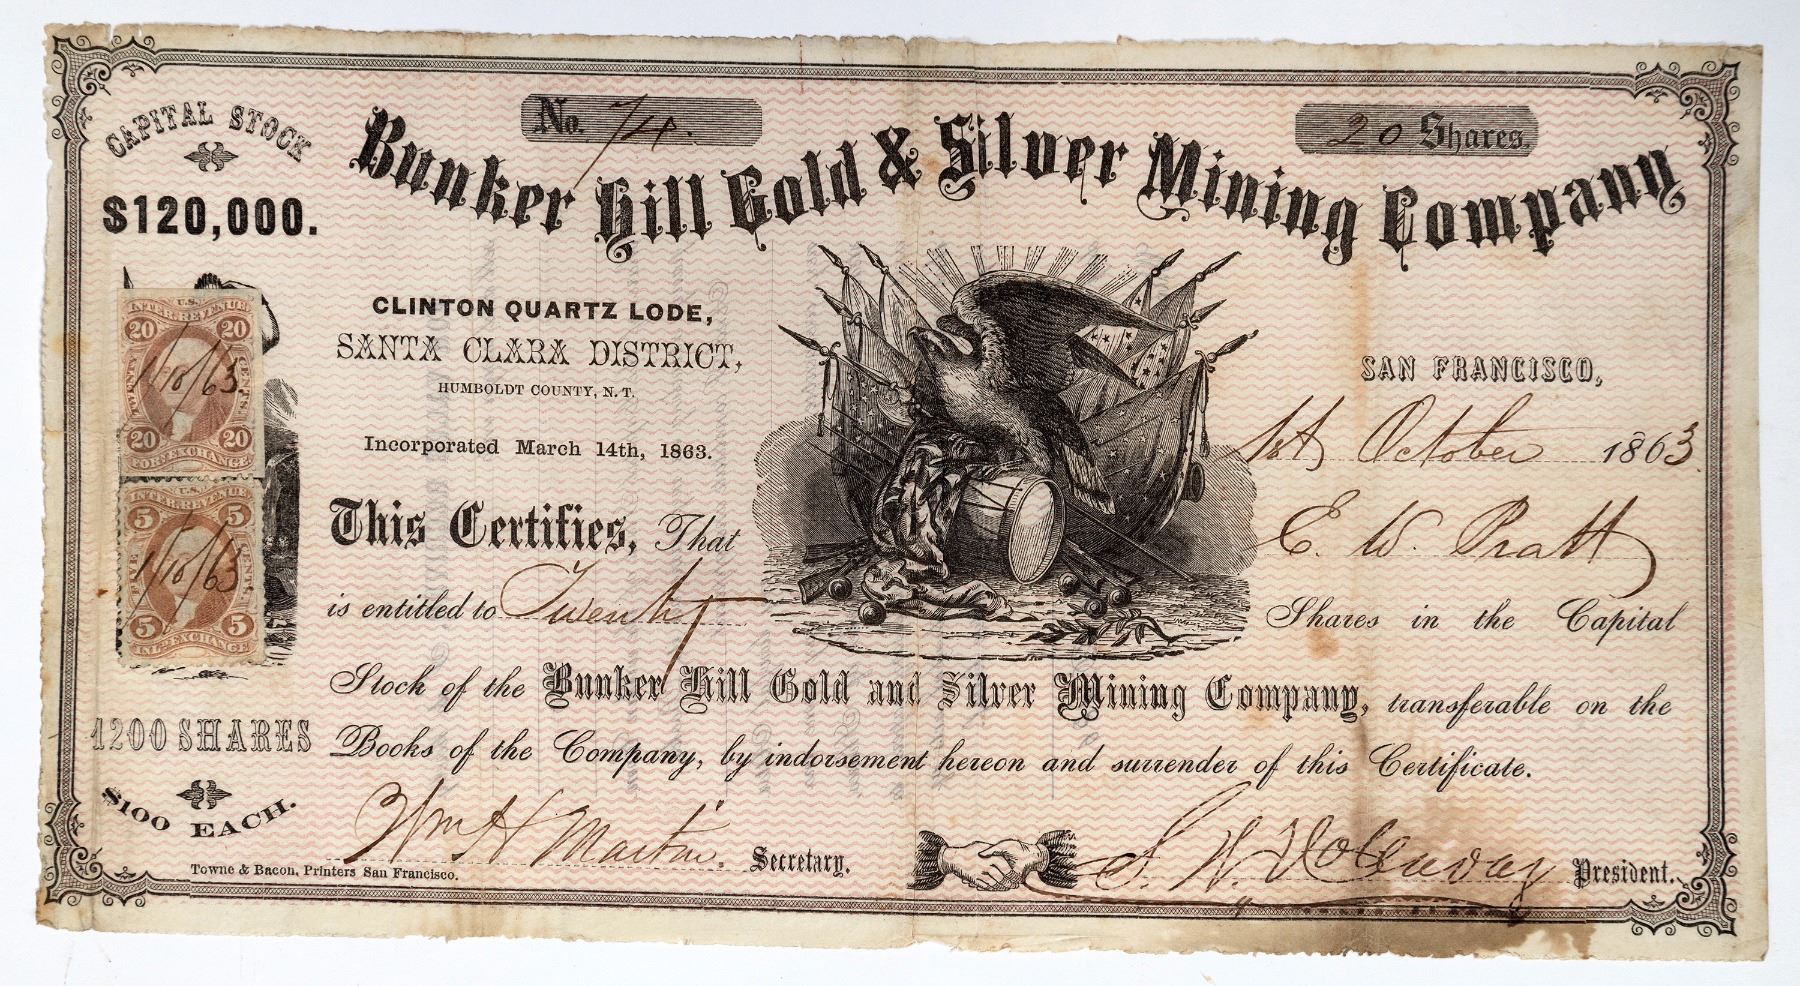 CAPITAL STOCK
$120,000.
No. 74.
20 Shares.
Bunker Hill Gold & Silver Mining Company
CLINTON QUARTZ LODE,
SANTA CLARA DISTRICT,
HUMBOLDT COUNTY, N. T.
Incorporated March 14th, 1863.
SAN FRANCISCO,
1st October 1863
This Certifies, That E. W. Pratt
is entitled to Twenty Shares in the Capital
Stock of the Bunker Hill Gold and Silver Mining Company, transferable on the
Books of the Company, by indorsement hereon and surrender of this Certificate.
Wm H Martin. Secretary.
President.
U.S.
INTER. REVENUE
20 20
TWENTY CENTS
1/10/63
20 20
FOR. EXCHANGE
U.S.
INTER. REVENUE
5 5
FIVE CENTS
1/10/63
5 5
INL. EXCHANGE
1200 SHARES
$100 EACH.
Towne & Bacon, Printers San Francisco.